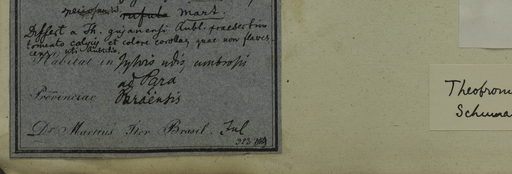 rufula Mart.
Differt a Th. gujanensi Aubl. praesertim
tomento calycis et colore corollae, quae non flaves-
Habitat in Sylvis udis umbrosis
ad Para
Provinciae Paraënsis
Dr. Martius Iter Brasil. Jul
Theobrom
Schuma